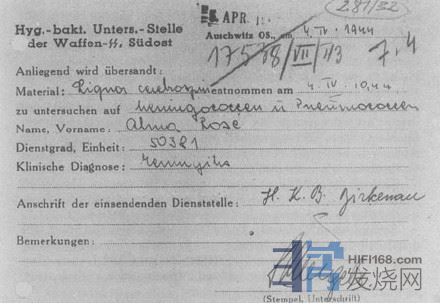 281/32
APR. 1
Hyg.-bakt. Unters.-Stelle
der Waffen-SS, Südost
Auschwitz OS., am 4. IV. 1944
17538/VII/43 7.4
Anliegend wird übersandt:
Material: entnommen am 4. IV 1944
zu untersuchen auf Meningococcen u Pneumococcen
Name, Vorname: Alma Rosé
Dienstgrad, Einheit: 50381
Klinische Diagnose:
Anschrift der einsendenden Dienststelle: H. K. B. Birkenau
Bemerkungen:
(Stempel, Unterschrift)
HIFI168.COM
发烧网